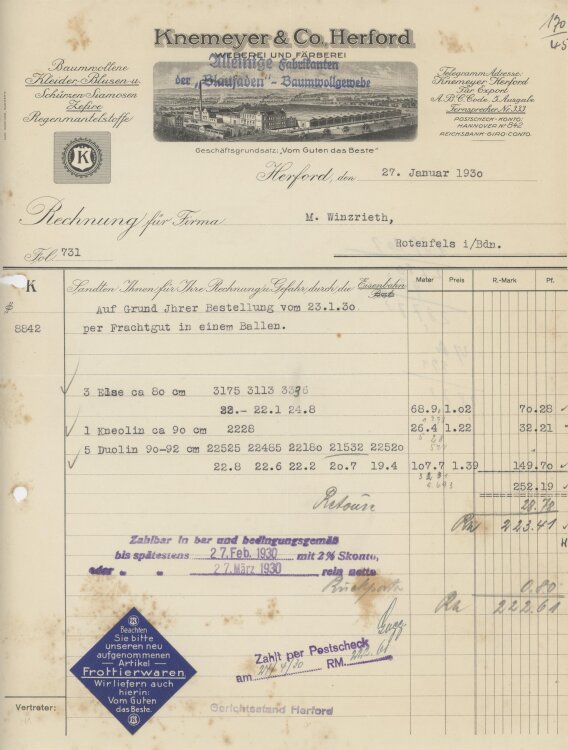 Knemeyer & Co. Herford
WEBEREI UND FÄRBEREI
Alleinige Fabrikanten
der „Blaufaden"-Baumwollgewebe
Baumwollene
Kleider-Blusen-u.
Schürzen-Siamosen
Zefire
Regenmantelstoffe
K
Telegramm-Adresse:
Knemeyer Herford
Für Export
A.B.C. Code, 5. Ausgabe
Fernsprecher Nr. 333
POSTSCHECK-KONTO:
HANNOVER Nº 842
REICHSBANK-GIRO-CONTO.
Geschäftsgrundsatz: „Vom Guten das Beste"
Herford, den 27. Januar 1930
Rechnung für Firma M. Winzrieth,
Hotenfels i/Bdn.
Fol. 731
K
Sandten Ihnen für Ihre Rechnung u. Gefahr durch die Eisenbahn
Meter Preis R.-Mark Pf.
Auf Grund Jhrer Bestellung vom 23.1.30
8842 per Frachtgut in einem Ballen.
3 Else ca 80 cm 3175 3113 3336
22.- 22.1 24.8 68.9 1.02 70.28
1 Kneolin ca 90 cm 2228 26.4 1.22 32.21
5 Duolin 90-92 cm 22525 22485 22180 21532 22520
22.8 22.6 22.2 20.7 19.4 107.7 1.39 149.70
252.19
Retour 28.78
223.41
Zahlbar in bar und bedingungsgemäß
bis spätestens 27. Feb. 1930 mit 2% Skonto,
oder " " 27. März 1930 rein netto
0.80
222.61
Beachten
Sie bitte
unseren neu
aufgenommenen
- Artikel -
Frottierwaren
Wir liefern auch
hierin:
Vom Guten
das Beste.
Zahlt per Postscheck
am RM.
Gerichtsstand Herford
Vertreter: